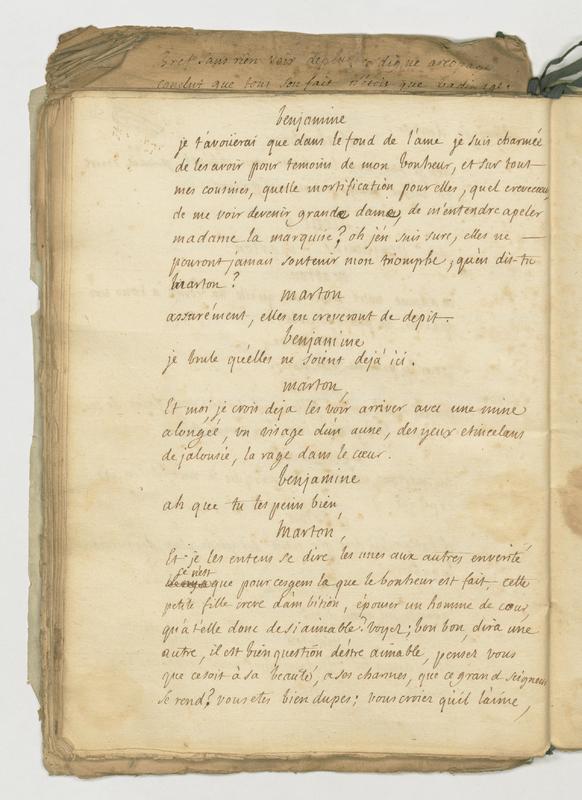 Bref sans rien voir
conclut que tout son fait n'étoit que badinage.
benjamine
je t'avoüerai que dans le fond de l'ame je suis charmée
de les avoir pour temoins de mon bonheur, et sur tout
mes cousines, quelle mortification pour elles, quel crevecœur
de me voir devenir grande dame, de m'entendre apeler
madame la marquise? oh j'en suis sure, elles ne
pouront jamais soutenir mon triomphe, qu'en dit-tu
Marton?
marton
assurément, elles en creveront de depit.
benjamine
je brule qu'elles ne soient deja ici.
marton
Et moi je crois deja les voir arriver avec une mine
alongéé, un visage d'un aune, des yeux etincelans
de jalousie, la rage dans le cœur.
benjamine
ah que tu les peins bien,
Marton,
Et je les entens se dire les unes aux autres en verité
ce n'est
que pour ces gens la que le bonheur est fait, cette
petite fille creve d'ambition, épouser un homme de cour,
qu'a t'elle donc de si aimable? voyez; bon bon, dira une
autre, il est bien question d'éstre aimable, pensez vous
que ce soit à sa beauté, a ses charmes, que ce grand seigneur
se rend? vous etes bien dupes; vous croiez qu'il l'aime,